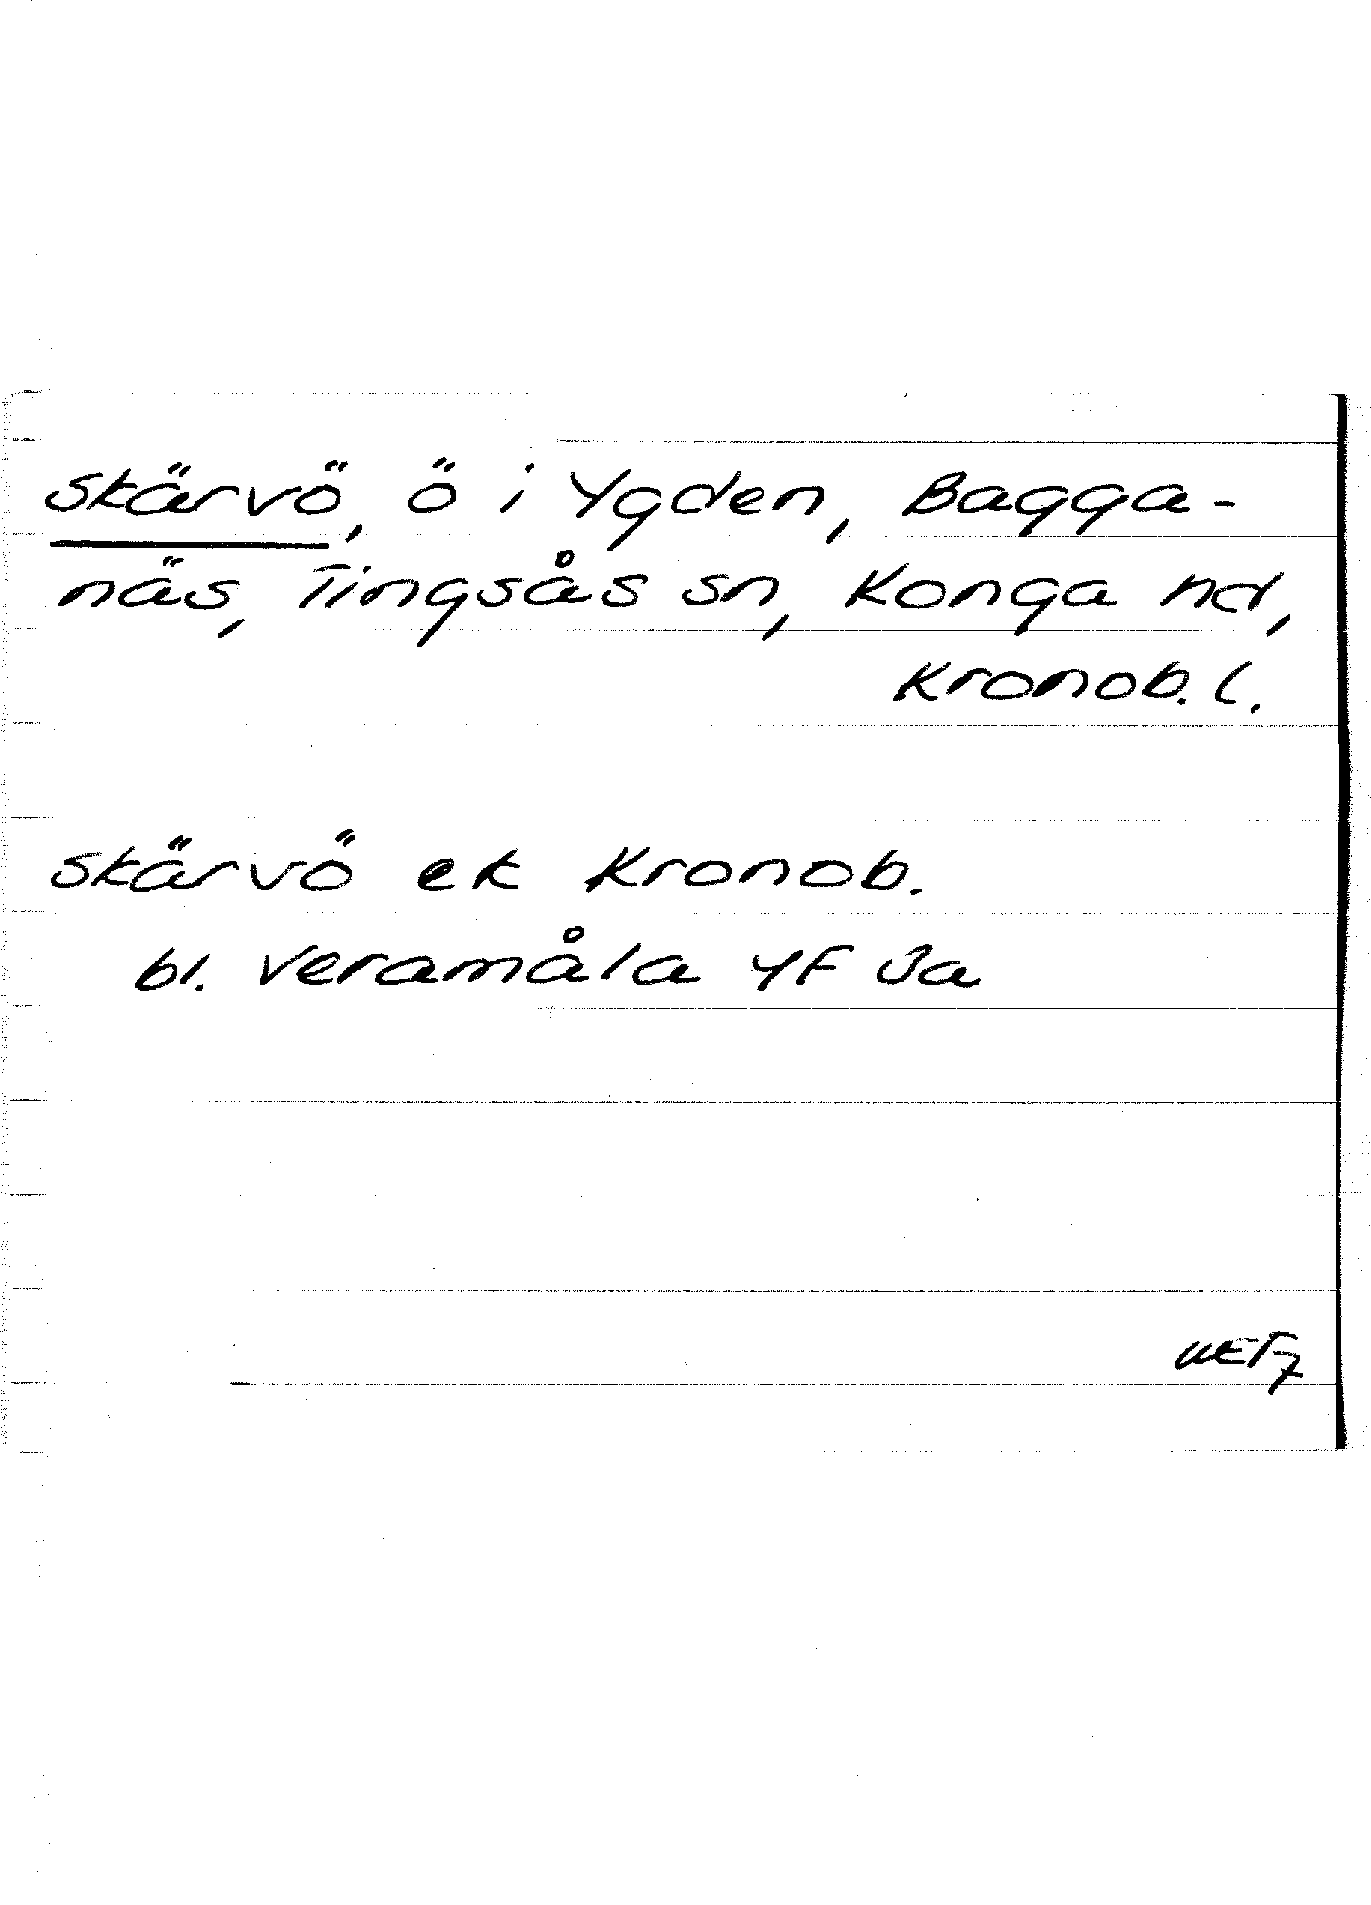 Skärvö, ö i Ygden, Bagga-
näs, Tingsås sn, Konga hd,
Kronob. l.
Skärvö ek Kronob.
bl. Veramåla 4F 3a